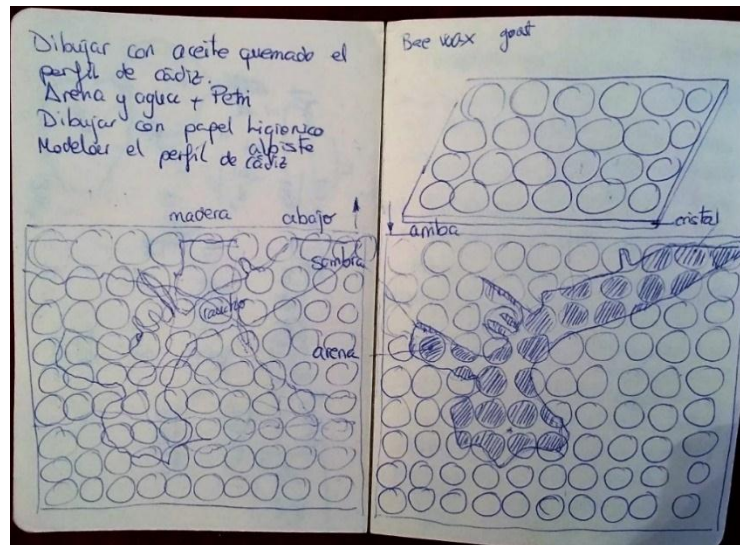 Dibujar con aceite quemado el
perfil de cádiz.
Arena y agua + Petri
Dibujar con papel higienico
Modelar el perfil de cádiz
alpiste
madera abajo
sombra
caucho
Bee wax goat
cristal
arriba
arena